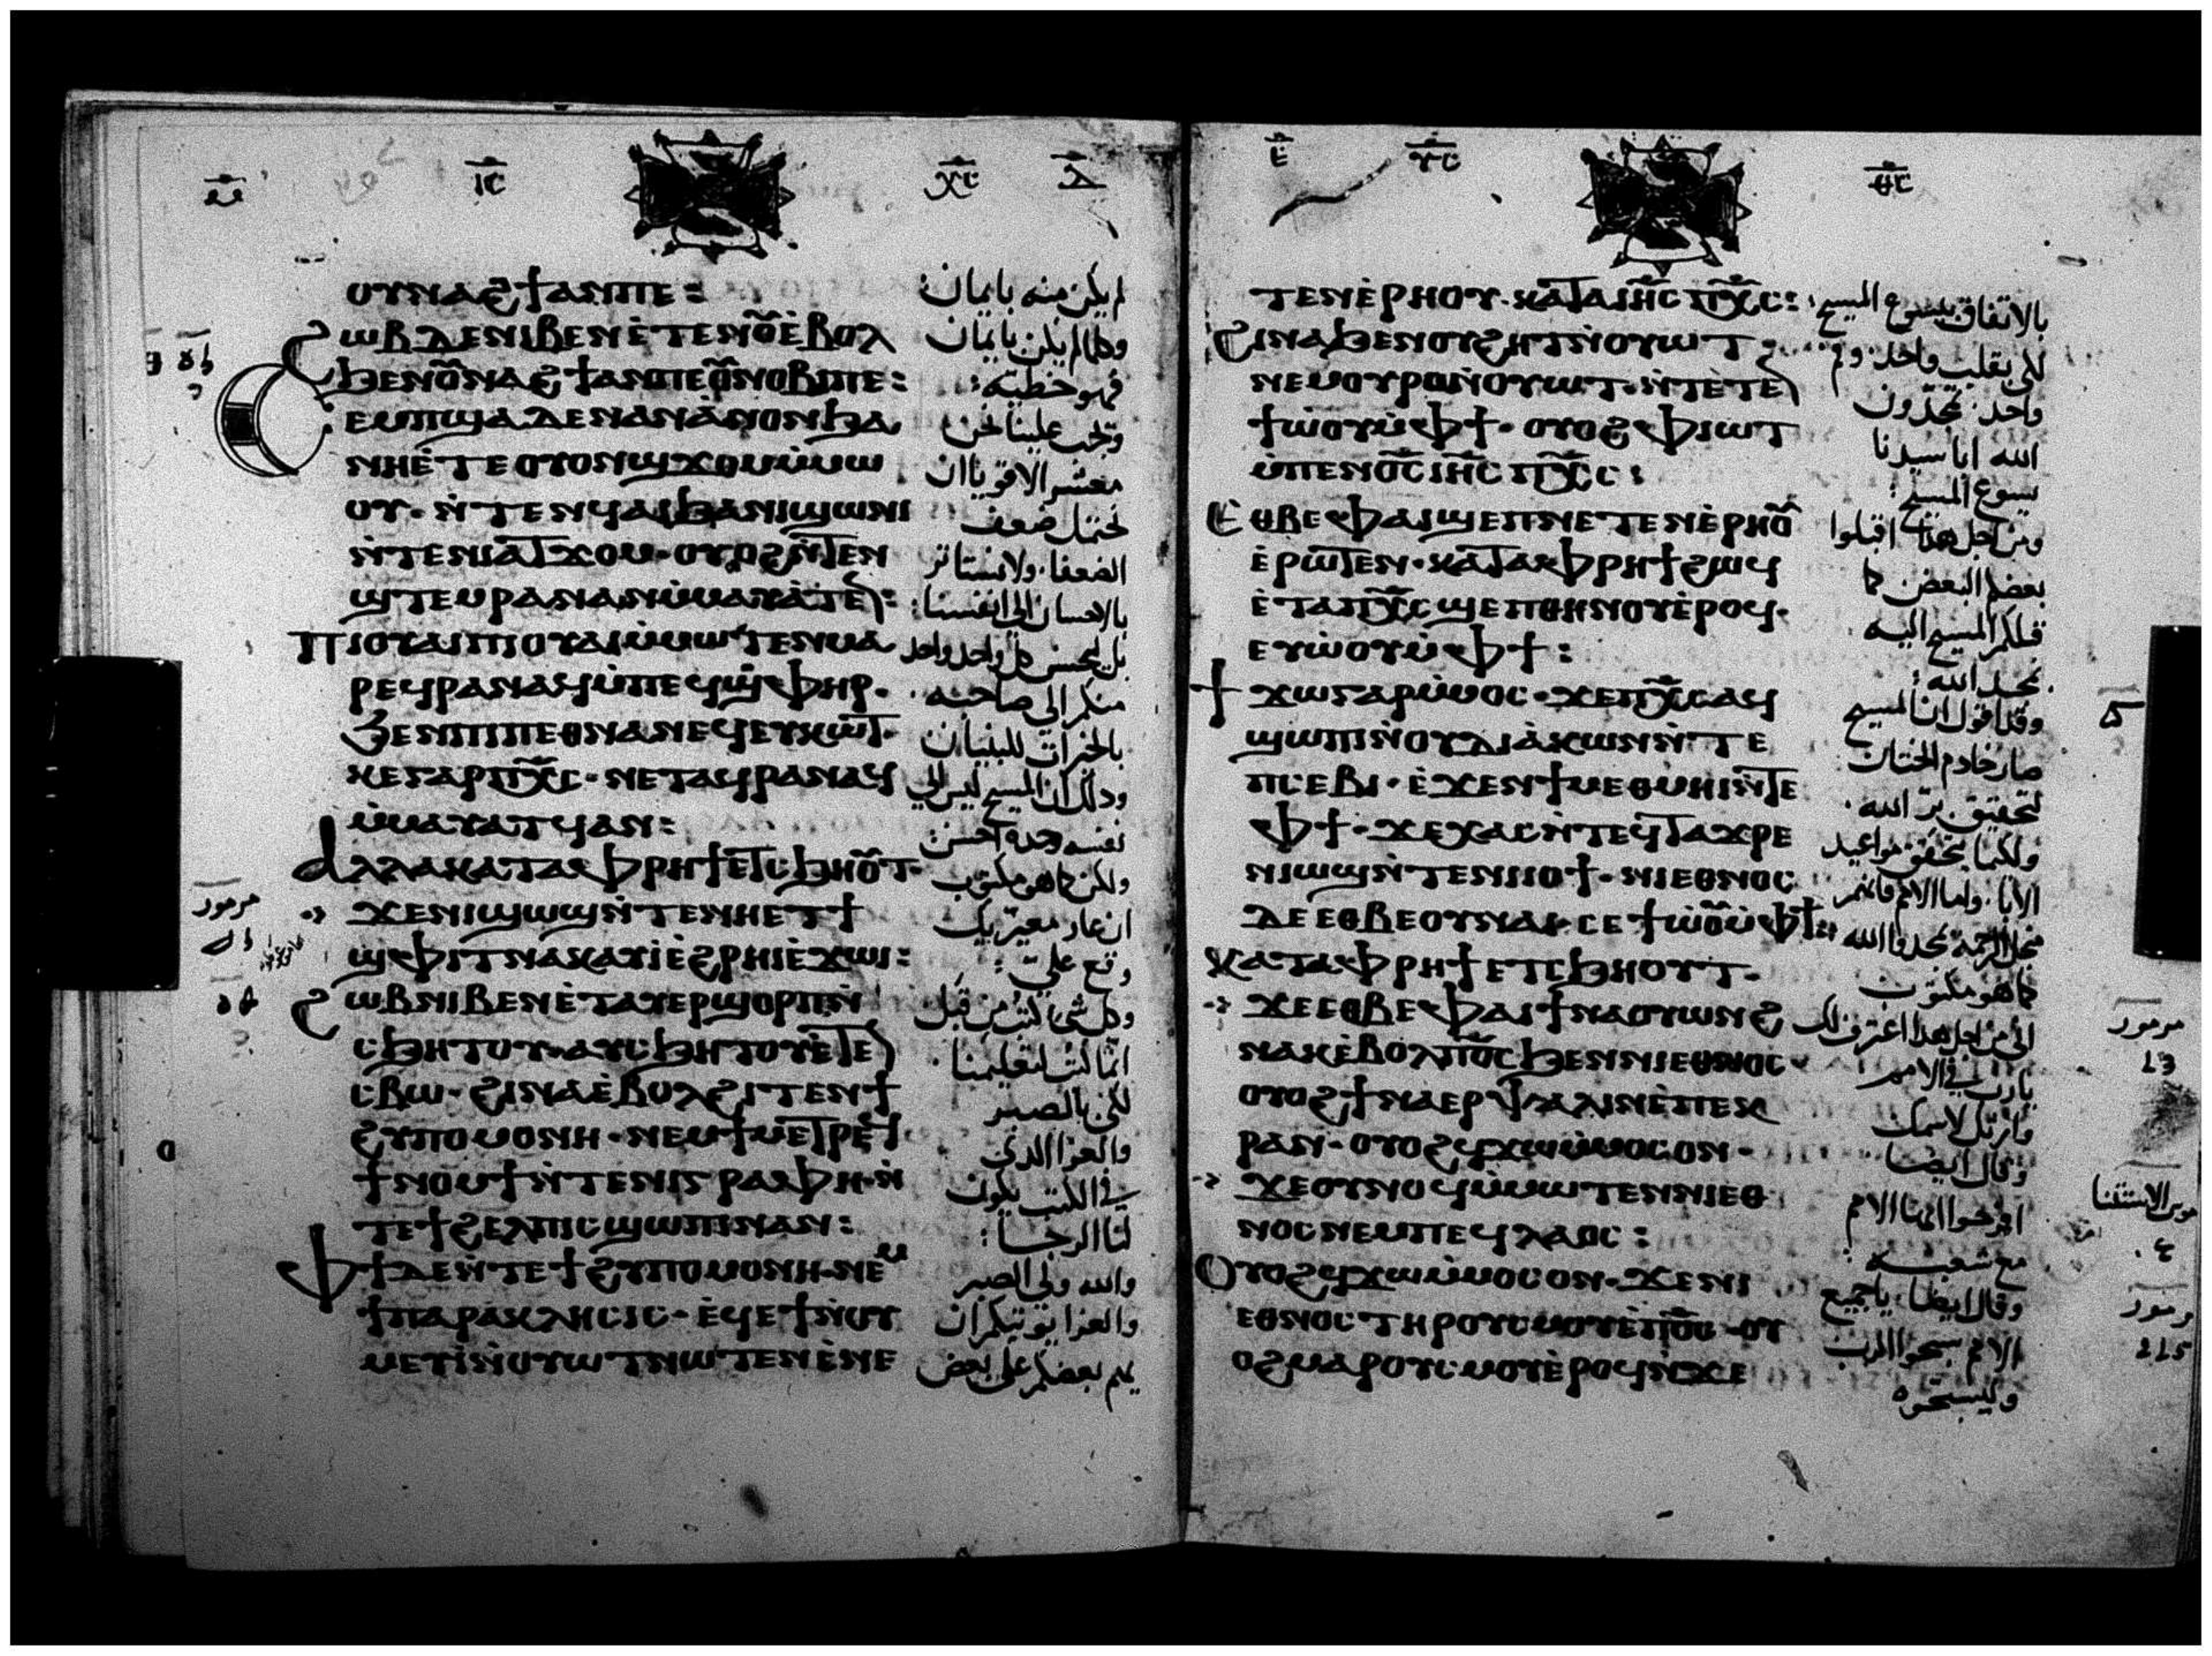 ⲙ̅ⲁ̅
ⲓ̅ⲥ̅
ⲭ̅ⲥ̅
ⲟⲩⲛⲁϩϯⲁⲛⲡⲉ:
ϩⲱⲃⲇⲉⲛⲓⲃⲉⲛⲉ̀ⲧⲉⲛⲟ̅ⲉ̀ⲃⲟⲗ
ϧⲉⲛⲟ̅ⲛⲁϩϯⲁⲛⲡⲉⲟ̅ⲛⲟⲃⲓⲡⲉ:
ⲥⲉⲙⲡϣⲁ.ⲇⲉⲛⲁⲛⲁ̀ⲛⲟⲛϧⲁ
ⲛⲏⲉ̀ⲧⲉⲟⲩⲟⲛϣϫⲟⲙⲙ̀ⲙⲱ
ⲟⲩ· ⲛ̀ⲧⲉⲛϥⲁⲓϧⲁⲛⲓϣⲱⲛⲓ
ⲛ̀ⲧⲉⲛⲓⲁⲧϫⲟⲙ·ⲟⲩⲟϩⲛ̀ⲧⲉⲛ
ϣⲧⲉⲙⲣⲁⲛⲁⲛⲙ̀ⲙⲁⲩⲁ̀ⲧⲉⲛ:
ⲡⲓⲟⲩⲁⲓⲡⲓⲟⲩⲁⲓⲙ̀ⲙⲱⲧⲉⲛⲙⲁ
ⲣⲉϥⲣⲁⲛⲁϥⲙ̀ⲡⲉϥϣ̀ⲫⲏⲣ·
ϧⲉⲛⲡⲓⲡⲉⲑⲛⲁⲛⲉϥⲉⲩⲕⲱⲧ·
ⲕⲉⲅⲁⲣⲡⲭ̅ⲥ̅·ⲛⲉⲧⲁϥⲣⲁⲛⲁϥ
ⲙ̀ⲙⲁⲩⲁⲧϥⲁⲛ:
ⲁⲗⲗⲁⲕⲁⲧⲁⲫⲣⲏϯⲉⲧⲥϧⲏⲟ̅ⲧ·
ϫⲉⲛⲓϣⲱϣⲛ̀ⲧⲉⲛⲏⲉⲧϯ
ϣⲫⲓⲧⲛⲁⲕⲁⲩⲓ̀ⲉ̀ϩⲣⲏⲓⲉ̀ϫⲱⲓ:
ϩⲱⲃⲛⲓⲃⲉⲛⲉ̀ⲧⲁⲩⲉⲣϣⲟⲣⲡⲛ̀
ⲥϧⲏⲧⲟⲩ·ⲁⲩⲥϧⲏⲧⲟⲩⲉ̀ⲧⲉⲛ
ⲥⲃⲱ·ϩⲓⲛⲁⲉ̀ⲃⲟⲗϩⲓⲧⲉⲛϯ
ϩⲩⲡⲟⲙⲟⲛⲏ·ⲛⲉⲙϯⲙⲉⲧⲣⲉϥ
ϯⲛⲟⲙϯⲛ̀ⲧⲉⲛⲓⲅⲣⲁⲫⲏ·ⲛ̀
ⲧⲉϯϩⲉⲗⲡⲓⲥϣⲱⲡⲓⲛⲁⲛ:
ⲫϯⲇⲉⲛ̀ⲧⲉϯϩⲩⲡⲟⲙⲟⲛⲏ·ⲛⲉⲙ
ϯⲡⲁⲣⲁⲕⲗⲏⲥⲓⲥ·ⲉ̀ϥⲉϯⲛ̀ⲟⲩ
ⲙⲉⲩⲓ̀ⲛ̀ⲟⲩⲱⲧⲛⲱⲧⲉⲛⲉ̀ⲛⲉ
لم يكن منه بايمان:
وكلما لم يكن بايمان
فهو خطيه:
وتجب علينا نحن
معشر الاقويا ان
نحتمل ضعف
الضعفا. ولا نستاثر
بالاحسان الى انفسنا:
بل ليحسن كل واحد واحد
منكم الى صاحبه.
بالخيرات للبنيان
وذلك ان المسيح ليس الى
نفسه وحده احسن
ولكن كما هو مكتوب
ان عار معيريك
وقع علي:
وكل شي كتب من قبل
انما كتب لتعليمنا.
لكي بالصبر
والعزا الذي
في الكتب يكون
لنا الرجا:
والله ولي الصبر
والعزا يوتيكم ان
يهم بعضكم على بعض
مزمور
ⲉ̅
ⲩ̅ⲥ̅
ⲑ̅ⲥ̅
ⲧⲉⲛⲉ̀ⲣⲏⲟⲩ·ⲕⲁⲧⲁⲓⲏ̅ⲥ̅ⲡⲭ̅ⲥ̅:
ϩⲓⲛⲁϧⲉⲛⲟⲩϩⲏⲧⲛ̀ⲟⲩⲱⲧ
ⲛⲉⲙⲟⲩⲣⲟⲛ̀ⲟⲩⲱⲧ·ⲛ̀ⲧⲉⲧⲉⲛ
ϯⲱ̀ⲟⲩⲙ̀ⲫϯ·ⲟⲩⲟϩⲫⲓⲱⲧ
ⲙ̀ⲡⲉⲛⲟ̅ⲥ̅ⲓⲏ̅ⲥ̅ⲡⲭ̅ⲥ̅:
ⲉⲑⲃⲉⲫⲁⲓϣⲉⲡⲛⲉⲧⲉⲛⲉ̀ⲣⲏⲟ̅
ⲉ̀ⲣⲱⲧⲉⲛ·ⲕⲁⲧⲁⲫⲣⲏϯϩⲱϥ
ⲉ̀ⲧⲁⲡⲭ̅ⲥ̅ϣⲉⲡⲑⲏⲛⲟⲩⲉ̀ⲣⲟϥ·
ⲉⲩⲱ̀ⲟⲩⲙ̀ⲫϯ:
ϯϫⲱⲅⲁⲣⲙ̀ⲙⲟⲥ·ϫⲉⲡⲭ̅ⲥ̅ⲁϥ
ϣⲱⲡⲓⲛ̀ⲟⲩⲇⲓⲁ̀ⲕⲱⲛⲛ̀ⲧⲉ
ⲡⲥⲉⲃⲓ·ⲉ̀ϫⲉⲛϯⲙⲉⲑⲙⲏⲓⲛ̀ⲧⲉ
ⲫϯ·ϫⲉⲭⲁⲥⲛ̀ⲧⲉϥⲧⲁϫⲣⲉ
ⲛⲓⲱϣⲛ̀ⲧⲉⲛⲓⲟϯ·ⲛⲓⲉⲑⲛⲟⲥ
ⲇⲉⲉⲑⲃⲉⲟⲩⲛⲁⲓ·ⲥⲉϯⲱ̀ⲟ̅ⲙ̀ⲫϯ:
ⲕⲁⲧⲁⲫⲣⲏϯⲉⲧⲥϧⲏⲟⲩⲧ·
ϫⲉⲉⲑⲃⲉⲫⲁⲓϯⲛⲁⲟⲩⲱⲛϩ
ⲛⲁⲕⲉ̀ⲃⲟⲗⲡⲟ̅ⲥ̅ϧⲉⲛⲛⲓⲉⲑⲛⲟⲥ·
ⲟⲩⲟϩϯⲛⲁⲉⲣⲯⲁⲗⲓⲛⲉ̀ⲡⲉⲕ
ⲣⲁⲛ·ⲟⲩⲟϩϥϫⲱⲙ̀ⲙⲟⲥⲟⲛ·
ϫⲉⲟⲩⲛⲟϥⲙ̀ⲙⲱⲧⲉⲛⲛⲓⲉⲑ
ⲛⲟⲥⲛⲉⲙⲡⲉϥⲗⲁⲟⲥ:
ⲟⲩⲟϩϥϫⲱⲙ̀ⲙⲟⲥⲟⲛ·ϫⲉⲛⲓ
ⲉⲑⲛⲟⲥⲧⲏⲣⲟⲩⲥⲙⲟⲩⲉ̀ⲡⲟ̅ⲥ̅·ⲟⲩ
ⲟϩⲙⲁⲣⲟⲩⲥⲙⲟⲩⲉ̀ⲣⲟϥⲛ̀ϫⲉ
بالاتفاق بيسوع المسيح:
لكي بقلب واحد. وفم
واحد. تمجدون
الله ابا سيدنا
يسوع المسيح:
ومن اجل هذا اقبلوا
بعضكم البعض كما
قبلكم المسيح اليه.
لمجد الله:
وقد اقول ان المسيح
صار خادم الختان
لتحقيق بر الله.
ولكيما يحقق مواعيد
الابا. واما الامم فانهم
من اجل الرحمة يمجدوا الله
كما هو مكتوب
اني من اجل هذا اعترف لك
يارب في الامم
وارتل لاسمك
وقال ايضا
افرحوا ايها الامم
مع شعبه:
وقال ايضا. يا جميع
الامم سبحوا الرب
وليسبحوه
مزمور
مزمور